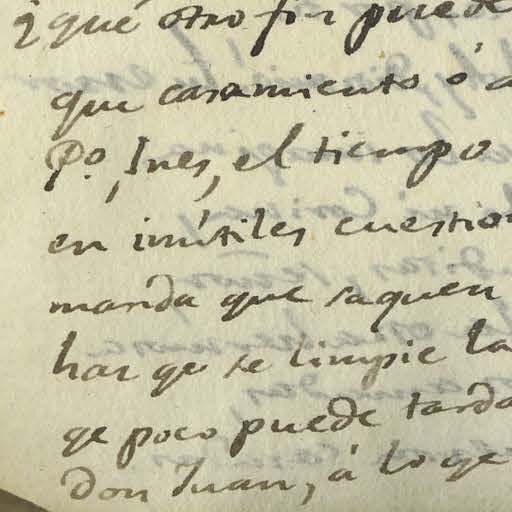 ¿qué otro fin puede
que casamiento ó a
Po, Ines, el tiempo
en inútiles cuestio
manda que saquen
haz qe se limpie la
qe poco puede tarda
don Juan, á lo qe